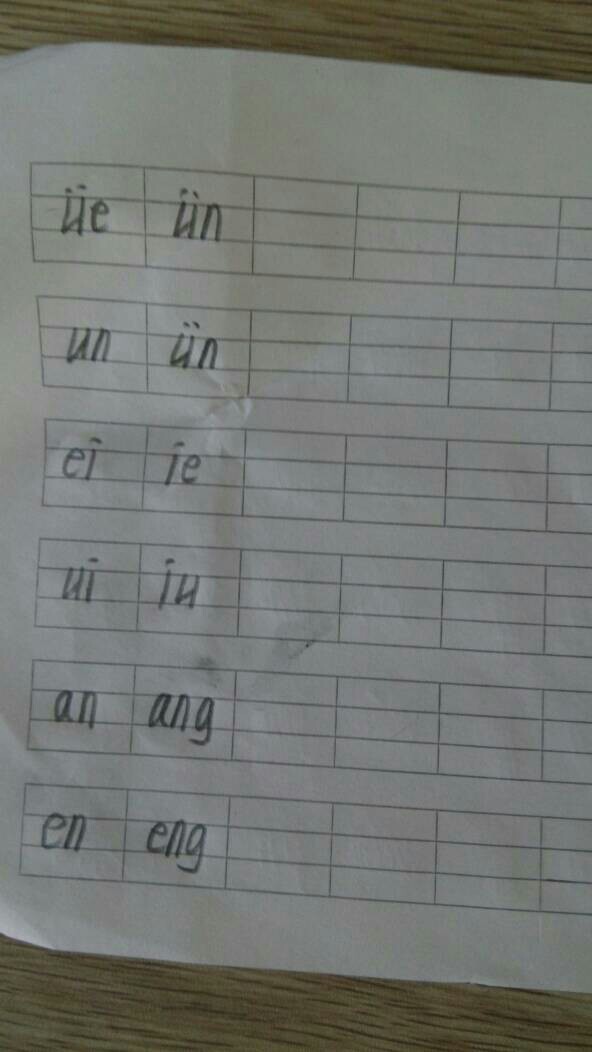 üe ün
un ün
ei ie
ui iu
an ang
en eng